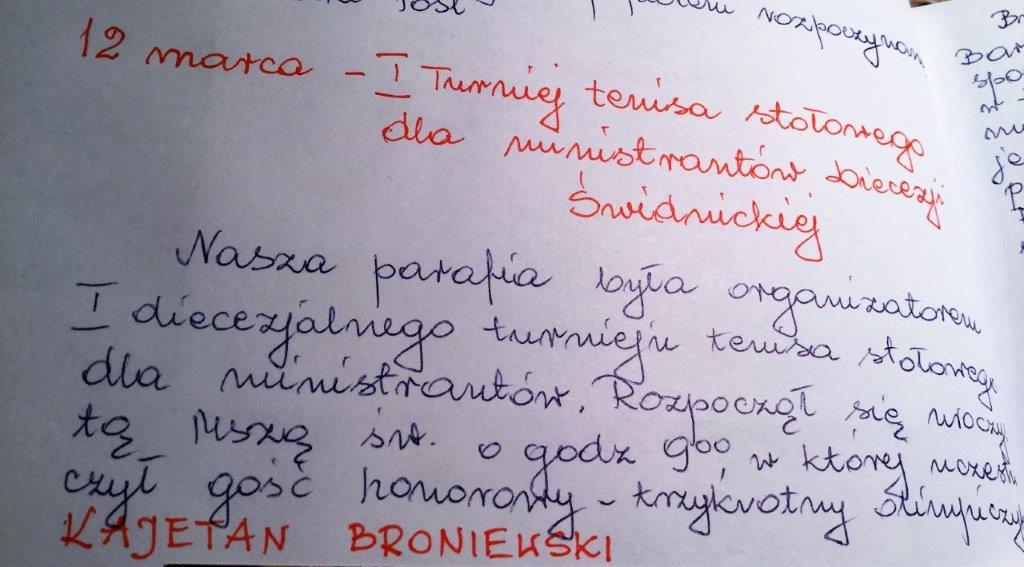 rozpoczynam
12 marca - I Turniej tenisa stołowego
dla ministrantów Diecezji
Świdnickiej
Nasza parafia była organizatorem
I diecezjalnego turnieju tenisa stołowego
dla ministrantów. Rozpoczął się uroczy
tą Mszą św. o godz 9⁰⁰, w której uczestni
czył gość honorowy - trzykrotny olimpijczyk
KAJETAN BRONIEWSKI